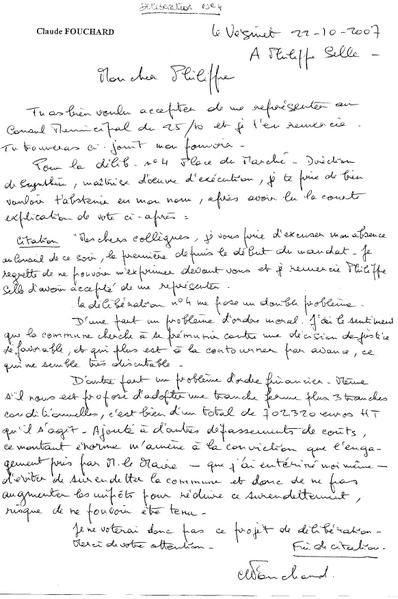 DELIBERATION N°4
Claude FOUCHARD
Le Vésinet 22-10-2007
A Philippe Selle -
Mon cher Philippe
Tu as bien voulu accepter de me représenter au
Conseil Municipal du 25/10 et je t'en remercie.
Tu trouveras ci-joint mon pouvoir -
Pour la délib. n°4 Place du Marché - Direction
de Synthèse, maîtrise d'oeuvre d'exécution, je te prie de bien
vouloir t'abstenir en mon nom, après avoir lu la courte
explication de vote ci-après :
Citation "Mes chers collègues, je vous prie d'excuser mon absence
au Conseil de ce soir, la première depuis le début du mandat - Je
regrette de ne pouvoir m'exprimer devant vous et je remercie Philippe
Selle d'avoir accepté de me représenter.
La délibération n°4 me pose un double problème -
D'une part un problème d'ordre moral. J'ai le sentiment
que la commune cherche à se prémunir contre une décision de justice
défavorable, et qui plus est à la contourner par avance, ce
qui me semble très discutable -
D'autre part un problème d'ordre financier - Même
s'il nous est proposé d'adopter une tranche ferme plus 3 tranches
conditionnelles, c'est bien d'un total de 702320 euros HT
qu'il s'agit - Ajouté à d'autres dépassements de coûts,
ce montant énorme m'amène à la conviction que l'enga-
gement pris par M. le Maire - que j'ai entériné moi même -
d'éviter de surendetter la commune et donc de ne pas
augmenter les impôts pour réduire ce surendettement,
risque de ne pouvoir être tenu -
Je ne voterai donc pas ce projet de délibération -
Merci de votre attention - Fin de citation.
C Fouchard